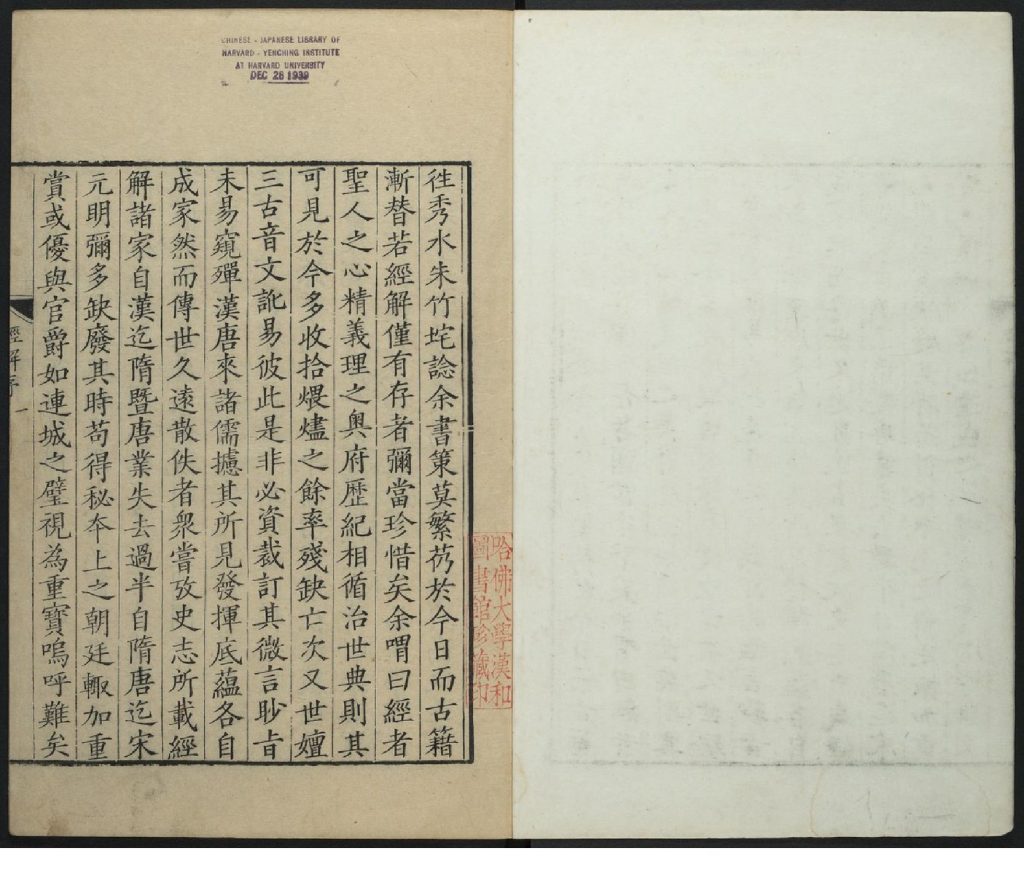 CHINESE - JAPANESE LIBRARY OF
HARVARD - YENCHING INSTITUTE
AT HARVARD UNIVERSITY
DEC 28 1939
徃秀水朱竹垞諗余書策莫繁芿於今日而古籍
漸替若經解僅有存者彌當珍惜矣余喟曰經者
聖人之心精義理之奥府歷紀相循治世典則其
可見於今多收拾煨燼之餘率殘缺亡次又世嬗
三古音文訛易彼此是非必資裁訂其微言眇㫖
未易窺殫漢唐來諸儒攄其所見發揮底蘊各自
成家然而傳世久逺散佚者衆嘗攷史志所載經
解諸家自漢迄隋暨唐業失去過半自隋唐迄宋
元明彌多缺廢其時苟得秘夲上之朝廷輙加重
賞或優與官爵如連城之璧視為重寶嗚呼難矣
經解序
一
哈佛大學漢和
圖書館珍藏印